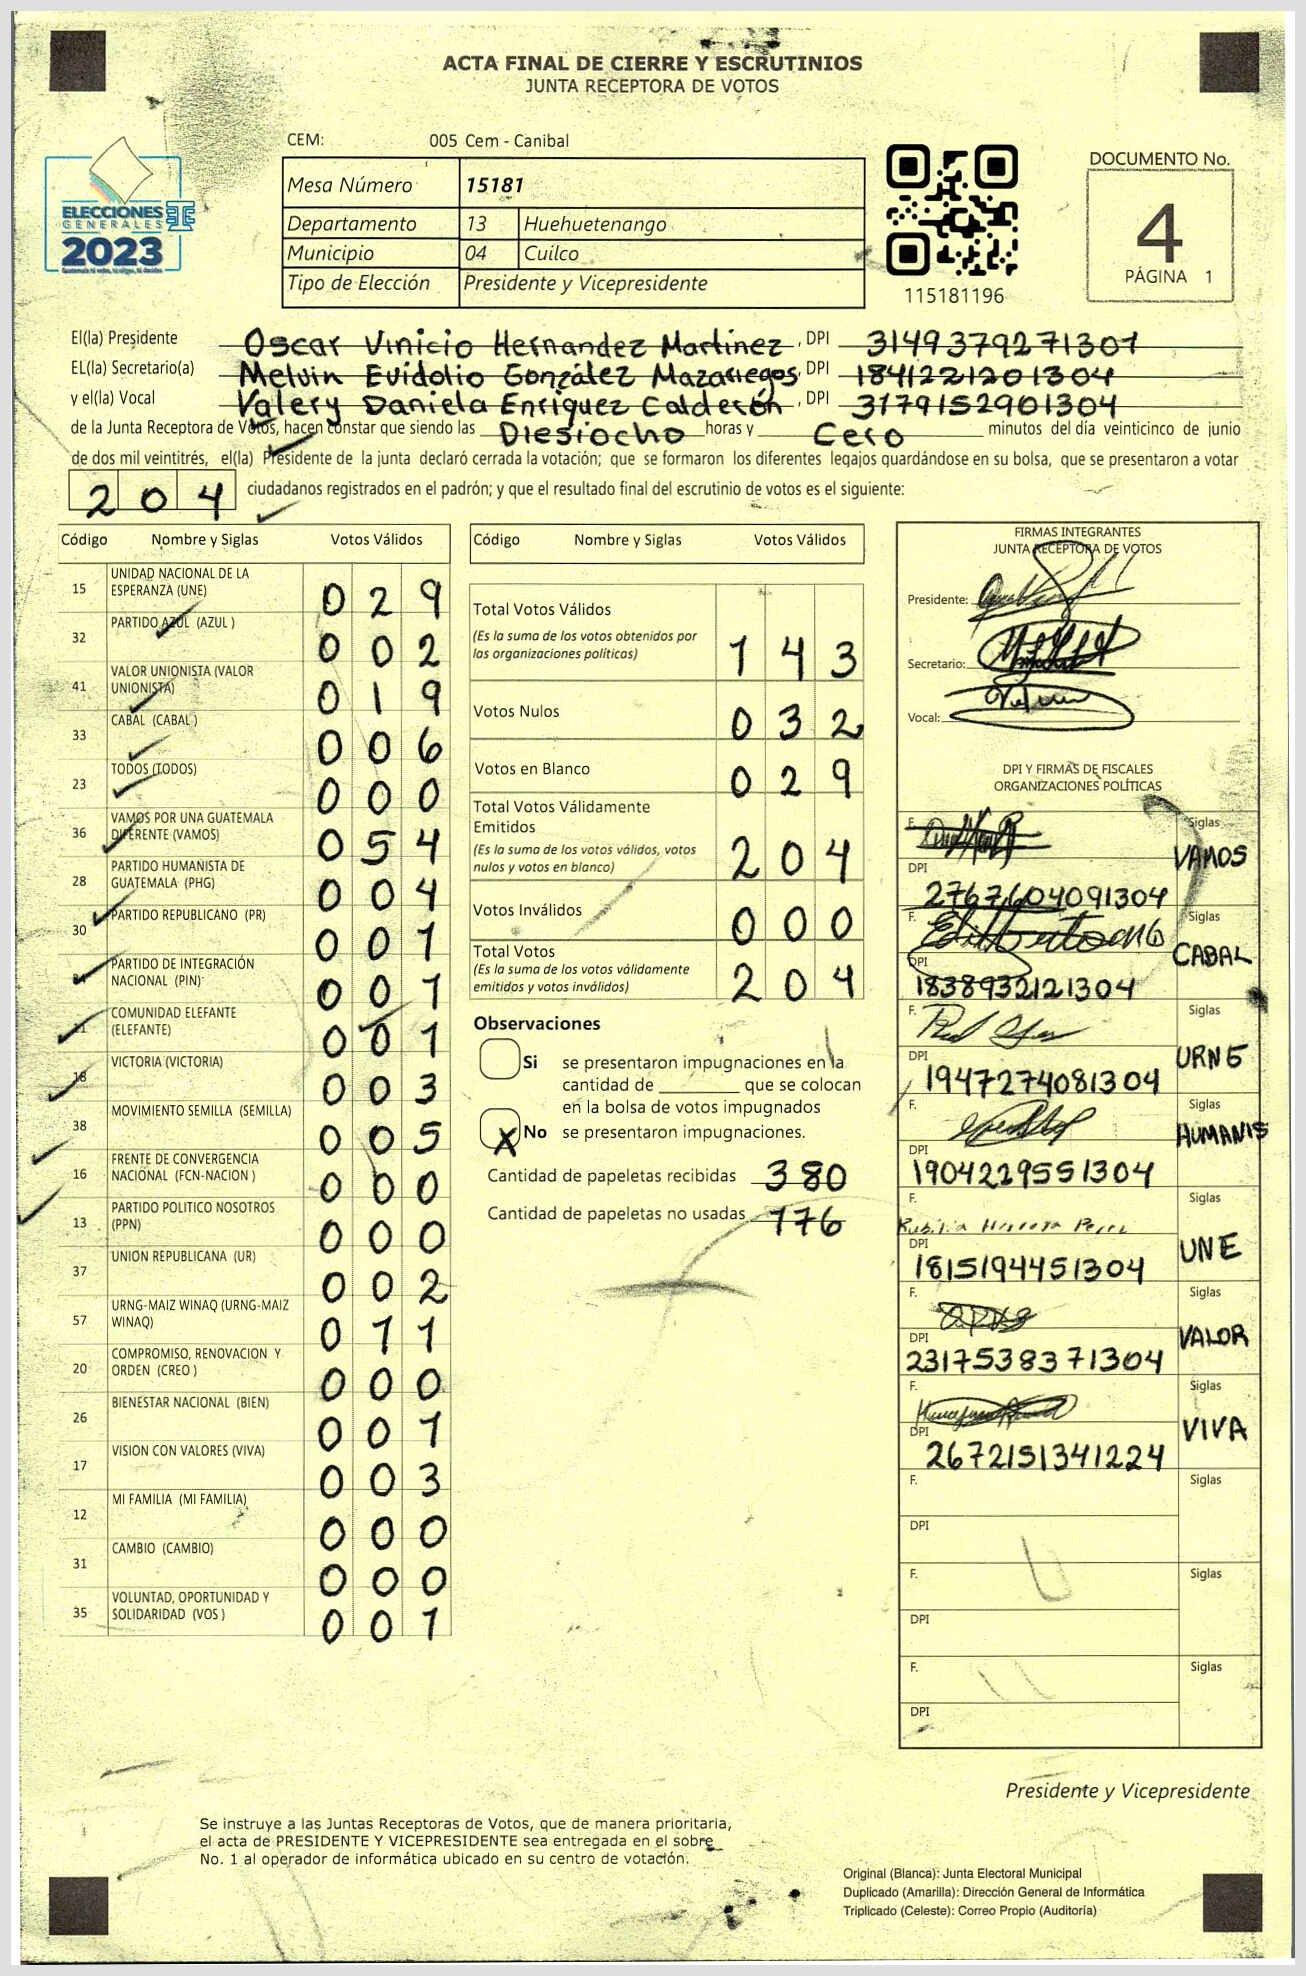 ACTA FINAL DE CIERRE Y ESCRUTINIOS
JUNTA RECEPTORA DE VOTOS
CEM: 005 Cem - Canibal
ELECCIONES
GENERALES
2023
Mesa Número 15181
Departamento 13 Huehuetenango
Municipio 04 Cuilco
Tipo de Elección Presidente y Vicepresidente
115181196
DOCUMENTO No.
4
PÁGINA 1
El(la) Presidente Oscar Vinicio Hernandez Martinez, DPI 3149379271301
EL(la) Secretario(a) Melvin Evidolio González Mazariegos, DPI 1841221201304
y el(la) Vocal Valery Daniela Enriquez Calderón, DPI 3179152901304
de la Junta Receptora de Votos, hacen constar que siendo las Diesiocho horas y Cero minutos del día veinticinco de junio
de dos mil veintitrés, el(la) Presidente de la junta declaró cerrada la votación; que se formaron los diferentes legajos quardándose en su bolsa, que se presentaron a votar
204 ciudadanos registrados en el padrón; y que el resultado final del escrutinio de votos es el siguiente:
Código Nombre y Siglas Votos Válidos
15 UNIDAD NACIONAL DE LA ESPERANZA (UNE) 029
32 PARTIDO AZUL (AZUL ) 002
41 VALOR UNIONISTA (VALOR UNIONISTA) 019
33 CABAL (CABAL ) 006
23 TODOS (TODOS) 000
36 VAMOS POR UNA GUATEMALA DIFERENTE (VAMOS) 054
28 PARTIDO HUMANISTA DE GUATEMALA (PHG) 004
30 PARTIDO REPUBLICANO (PR) 001
PARTIDO DE INTEGRACIÓN NACIONAL (PIN) 001
11 COMUNIDAD ELEFANTE (ELEFANTE) 001
18 VICTORIA (VICTORIA) 003
38 MOVIMIENTO SEMILLA (SEMILLA) 005
16 FRENTE DE CONVERGENCIA NACIONAL (FCN-NACION ) 000
13 PARTIDO POLITICO NOSOTROS (PPN) 000
37 UNION REPUBLICANA (UR) 002
57 URNG-MAIZ WINAQ (URNG-MAIZ WINAQ) 011
20 COMPROMISO, RENOVACION Y ORDEN (CREO ) 000
26 BIENESTAR NACIONAL (BIEN) 001
17 VISION CON VALORES (VIVA) 003
12 MI FAMILIA (MI FAMILIA) 000
31 CAMBIO (CAMBIO) 000
35 VOLUNTAD, OPORTUNIDAD Y SOLIDARIDAD (VOS ) 001
Código Nombre y Siglas Votos Válidos
Total Votos Válidos
(Es la suma de los votos obtenidos por
las organizaciones políticas) 143
Votos Nulos 032
Votos en Blanco 029
Total Votos Válidamente
Emitidos
(Es la suma de los votos válidos, votos
nulos y votos en blanco) 204
Votos Inválidos 000
Total Votos
(Es la suma de los votos válidamente
emitidos y votos inválidos) 204
Observaciones
Si se presentaron impugnaciones en la
cantidad de ________ que se colocan
en la bolsa de votos impugnados
X No se presentaron impugnaciones.
Cantidad de papeletas recibidas 380
Cantidad de papeletas no usadas 176
FIRMAS INTEGRANTES
JUNTA RECEPTORA DE VOTOS
Presidente:
Secretario:
Vocal:
DPI Y FIRMAS DE FISCALES
ORGANIZACIONES POLÍTICAS
F. Siglas
VAMOS
DPI
2767604091304
F. Siglas
CABAL
DPI
1838932121304
F. Siglas
URNG
DPI
1947274081304
F. Siglas
HUMANIS
DPI
1904229551304
F. Siglas
UNE
DPI
1815194451304
F. Siglas
VALOR
DPI
2317538371304
F. Siglas
VIVA
DPI
2672151341224
F. Siglas
DPI
F. Siglas
DPI
F. Siglas
DPI
Presidente y Vicepresidente
Se instruye a las Juntas Receptoras de Votos, que de manera prioritaria,
el acta de PRESIDENTE Y VICEPRESIDENTE sea entregada en el sobre
No. 1 al operador de informática ubicado en su centro de votación.
Original (Blanca): Junta Electoral Municipal
Duplicado (Amarilla): Dirección General de Informática
Triplicado (Celeste): Correo Propio (Auditoría)